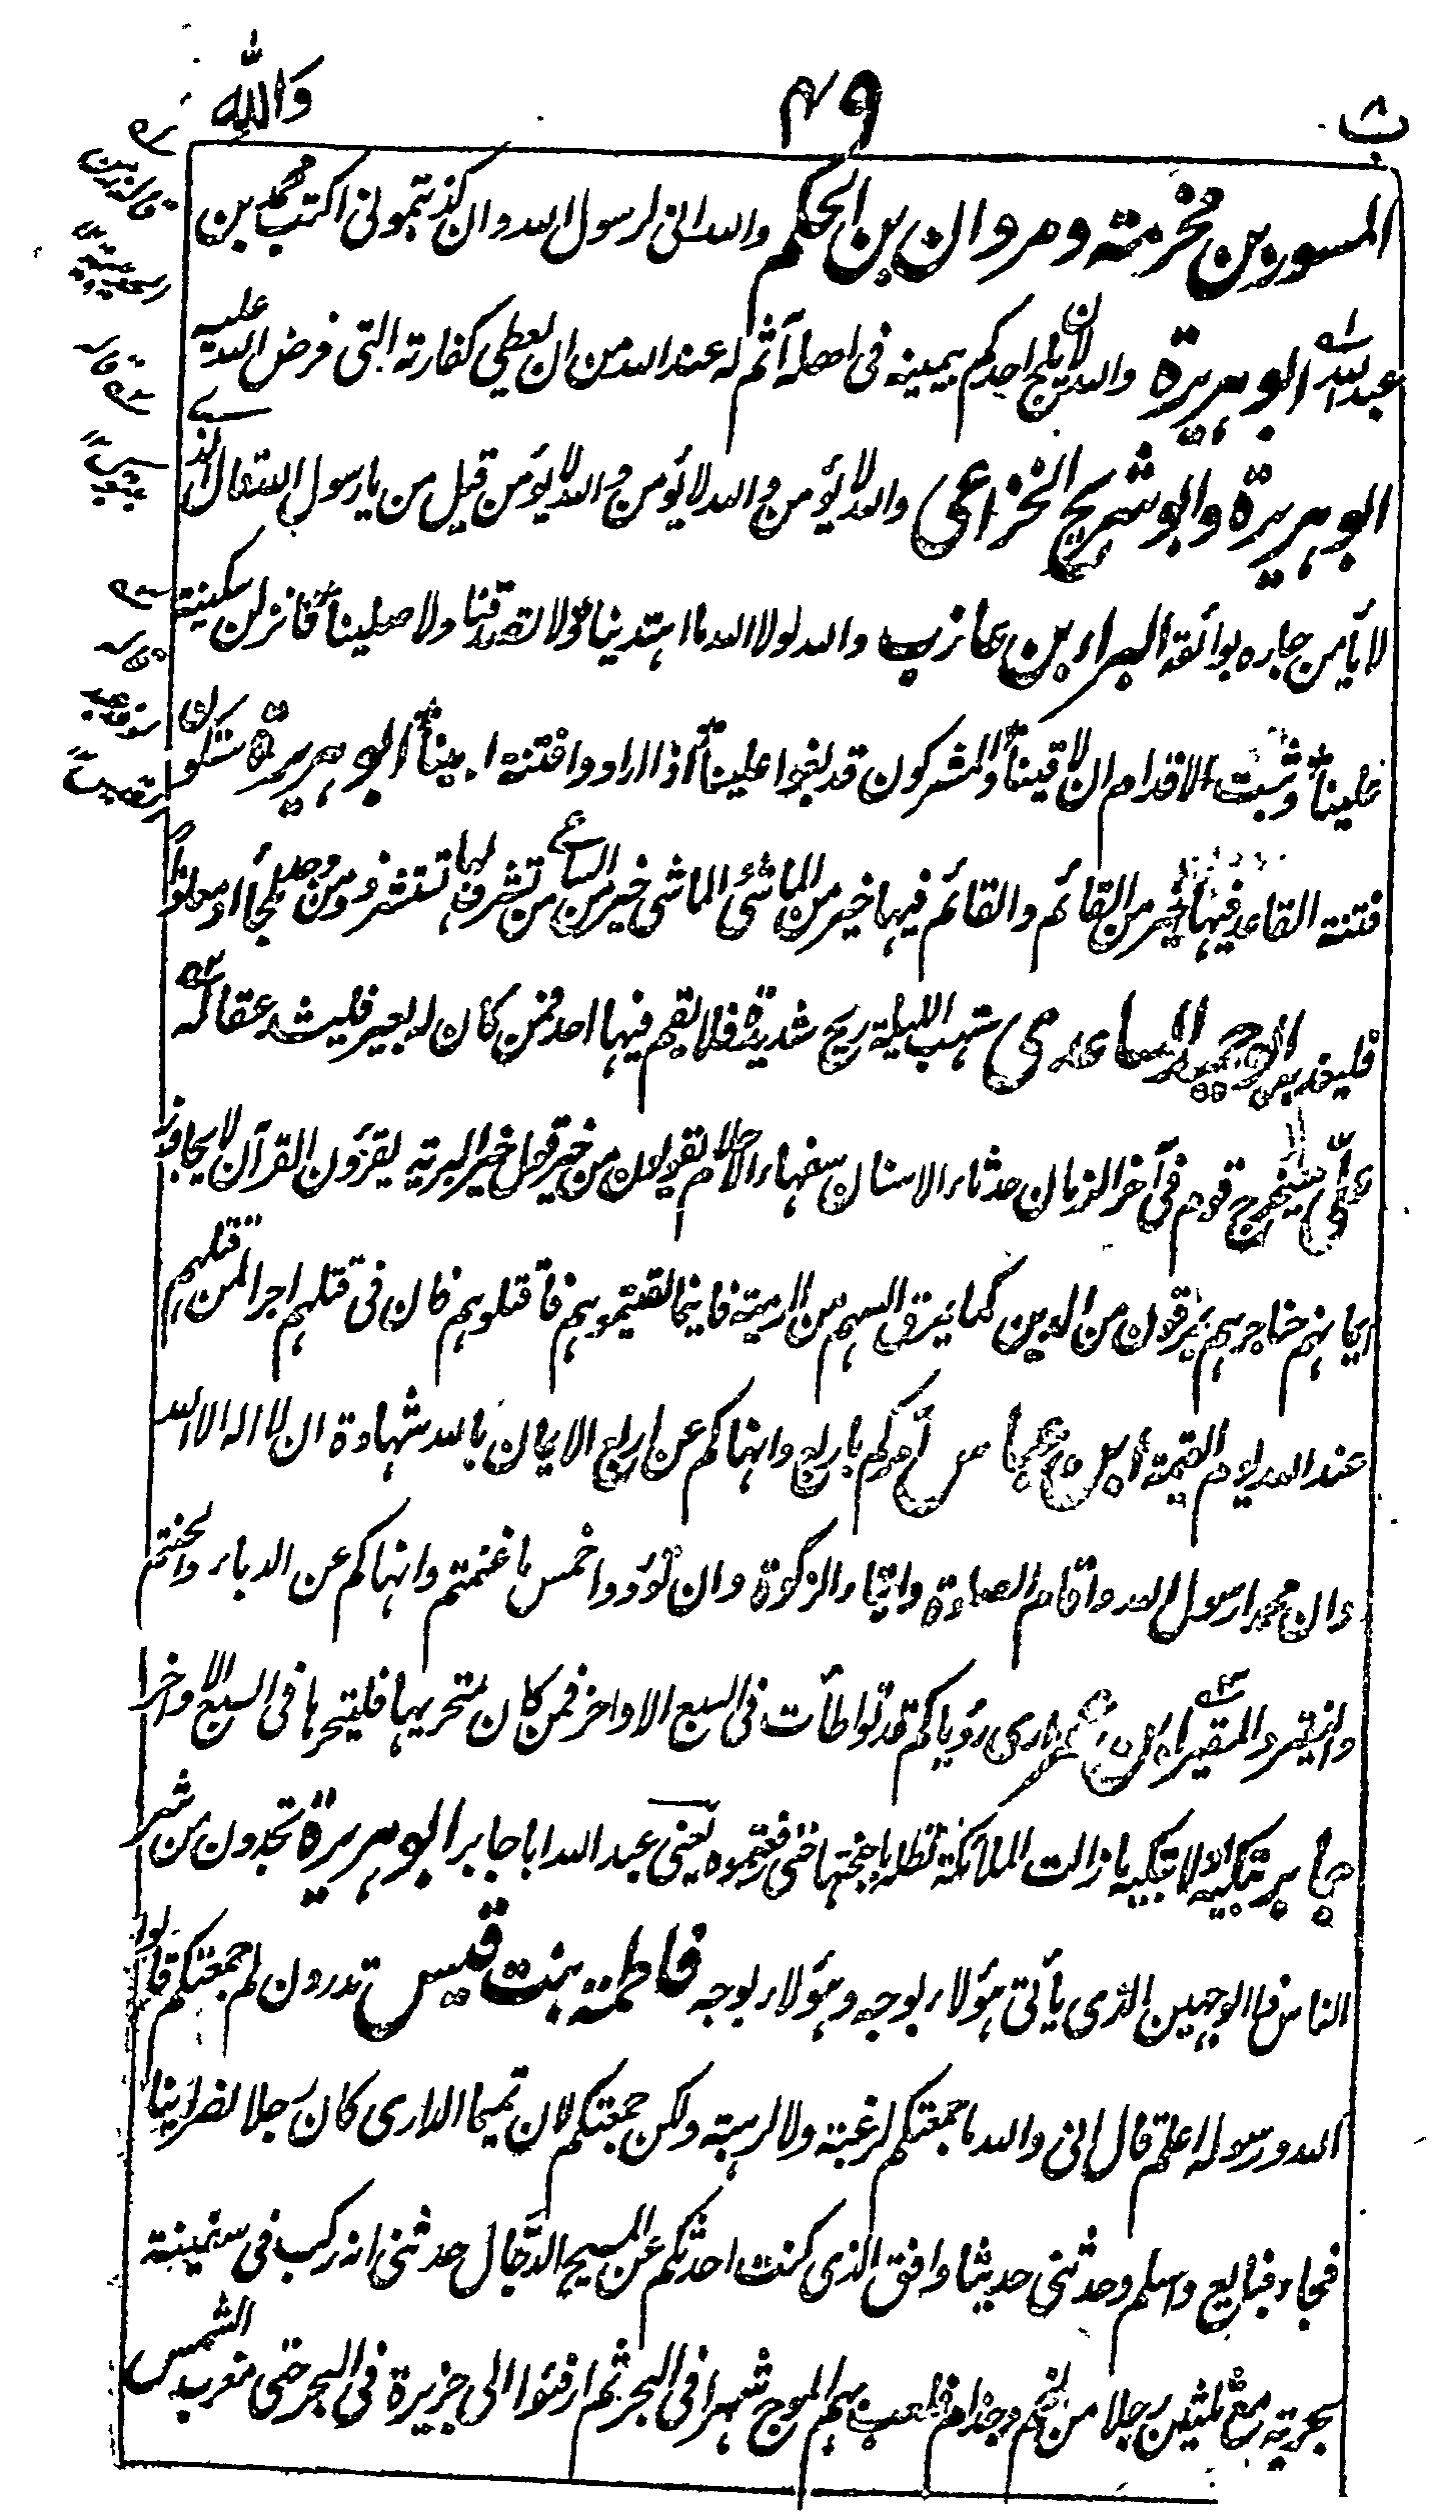 والله
۴۹
المسور بن مخرمة ومروان بن الحكم والله انى لرسول الله وان كذبتمونى اكتب محمد بن
عبد الله ابو هريرة والله لان يلج احدكم بيمينه فى اهله آثم له عند الله من ان يعطي كفارته التى فرض الله عليه
ابو هريرة وابو شريح الخزاعى والله لا يؤمن والله لا يؤمن والله لا يؤمن قيل من يا رسول الله قال الذى
لا يأمن جاره بوائقه البراء بن عازب والله لولا الله ما اهتدينا ولا تصدقنا ولا صلينا فانزلن سكينة
علينا وثبت الاقدام ان لاقينا والمشركون قد بغوا علينا اذا ارادوا فتنة ابينا ابو هريرة ستكون
فتنة القاعد فيها خير من القائم والقائم فيها خير من الماشى الماشى خير من الساعى من تشرف لها تستشرفه ومن وجد ملجأ او معاذا
فليعذ به ابو حميد الساعدى ستهب الليلة ريح شديدة فلا يقم فيها احد فمن كان له بعير فليشد عقاله
على سيخرج قوم فى آخر الزمان حدثاء الاسنان سفهاء الاحلام يقولون من خير قول خير البرية يقرؤن القرآن لا يجاوز
ايمانهم حناجرهم يمرقون من الدين كما يمرق السهم من الرمية فاينما لقيتموهم فاقتلوهم فان فى قتلهم اجرا لمن قتلهم
عند الله يوم القيمة ابن عباس آمركم باربع وانهاكم عن اربع الايمان بالله شهادة ان لا اله الا الله
وان محمدا رسول الله واقام الصلوة وايتاء الزكوة وان تؤدوا خمس ما غنمتم وانهاكم عن الدباء والحنتم
والنقير والمقير ابن عمر ارى رؤياكم قد تواطأت فى السبع الاواخر فمن كان متحريها فليتحرها فى السبع الاواخر
جابر تبكيه او لا تبكيه ما زالت الملائكة تظله باجنحتها حتى رفعتموه يعنى عبد الله ابا جابر ابو هريرة تجدون من شر
الناس ذا الوجهين الذى يأتى هؤلاء بوجه وهؤلاء بوجه فاطمة بنت قيس تدرون لم جمعتكم قالوا
الله ورسوله اعلم قال انى والله ما جمعتكم لرغبة ولا لرهبة ولكن جمعتكم لان تميما الدارى كان رجلا نصرانيا
فجاء فبايع واسلم وحدثنى حديثا وافق الذى كنت احدثكم عن المسيح الدجال حدثنى انه ركب فى سفينة
بحرية مع ثلثين رجلا من لخم وجذام فلعب بهم الموج شهرا فى البحر ثم ارفئوا الى جزيرة فى البحر حتى مغرب الشمس